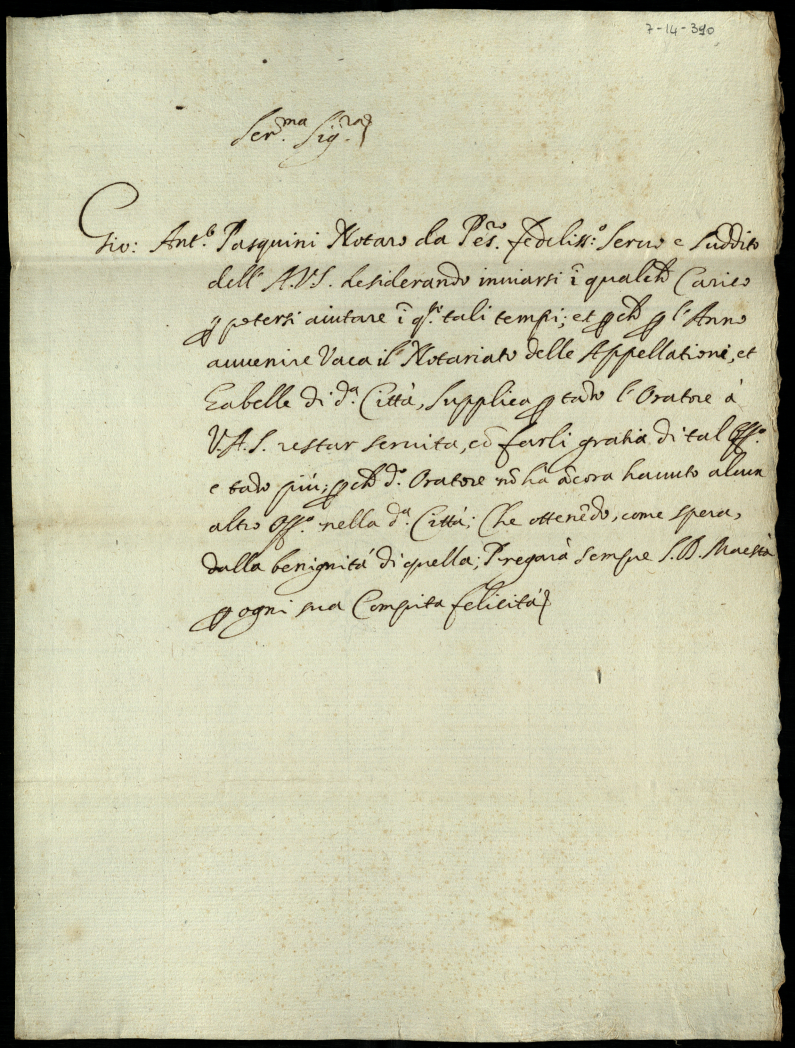 7-14-390
Ser.ma Sig.ra
Gio: Ant.o Pasquini Notaro da Pes.ro fedeliss:o Seruo e Suddito
dell' A.V.S. desiderando inuiarsi ī qualch Carico
p potersi aiutare ī q.sti tali tempi; et pch p l'Anno
auuenire Vaca il Notariato delle Appellationi, et
Gabelle di d.a Città, supplica p tāto l'Oratore à
V.A.S. restar seruita, cō farli gratia di tal Off.o
e tāto più; pch d.o Oratore nō ha ācora hauuto alcun
altro Off.o nella d.a Città; Che ottenēdo, come spera,
dalla benignità di quella; Pregarà sempre S.D. Maestà
p ogni sua Compita felicità